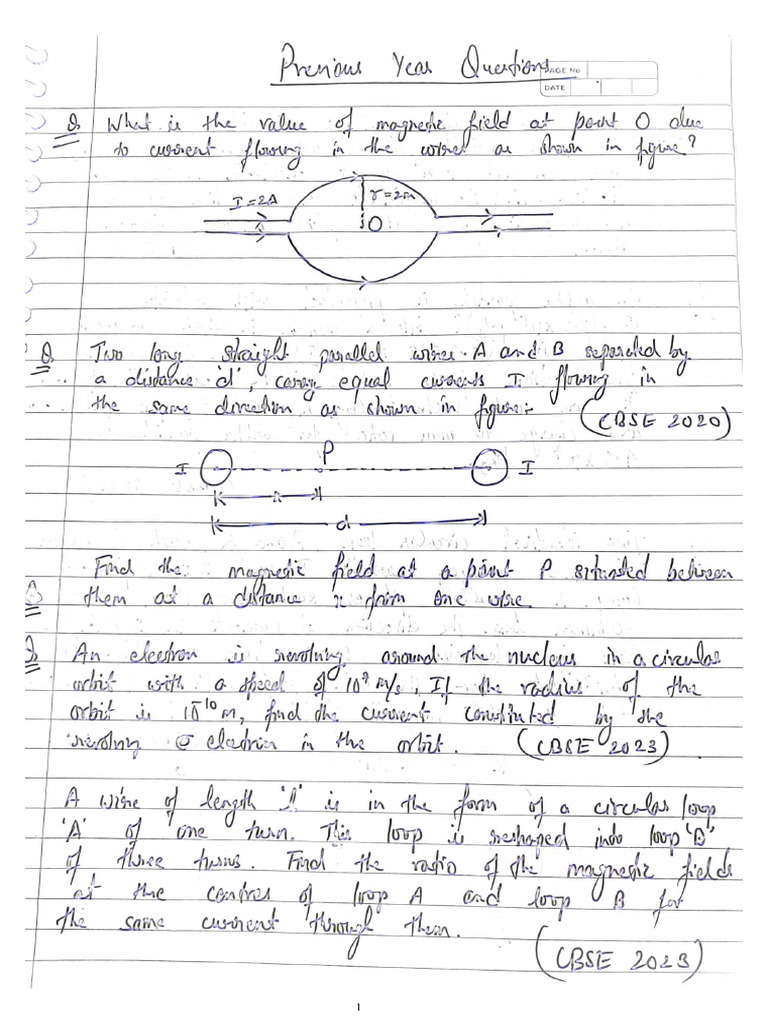 Previous Year Questions
PAGE NO
DATE
Q. What is the value of magnetic field at point O due
to current flowing in the wires as shown in figure?
I = 2A
r = 2m
O
Q. Two long straight parallel wires A and B separated by
a distance 'd', carry equal currents I flowing in
the same direction as shown in figure:-
(CBSE 2020)
P
I
I
x
d
Find the magnetic field at a point P situated between
them at a distance x from one wire.
Q. An electron is revolving around the nucleus in a circular
orbit with a speed of 10⁷ m/s, If the radius of the
orbit is 10⁻¹⁰ m, find the current constituted by the
revolving electron in the orbit. (CBSE 2023)
A wire of length 'l' is in the form of a circular loop
'A' of one turn. This loop is reshaped into loop 'B'
of three turns. Find the ratio of the magnetic fields
at the centres of loop A and loop B for
the same current through them.
(CBSE 2023)
1